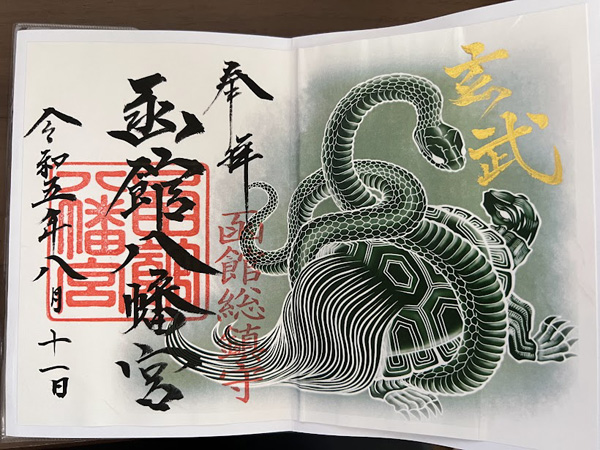 玄武
奉拝
函館総鎮守
函館八幡宮
函館
八幡宮
令和五年八月十一日